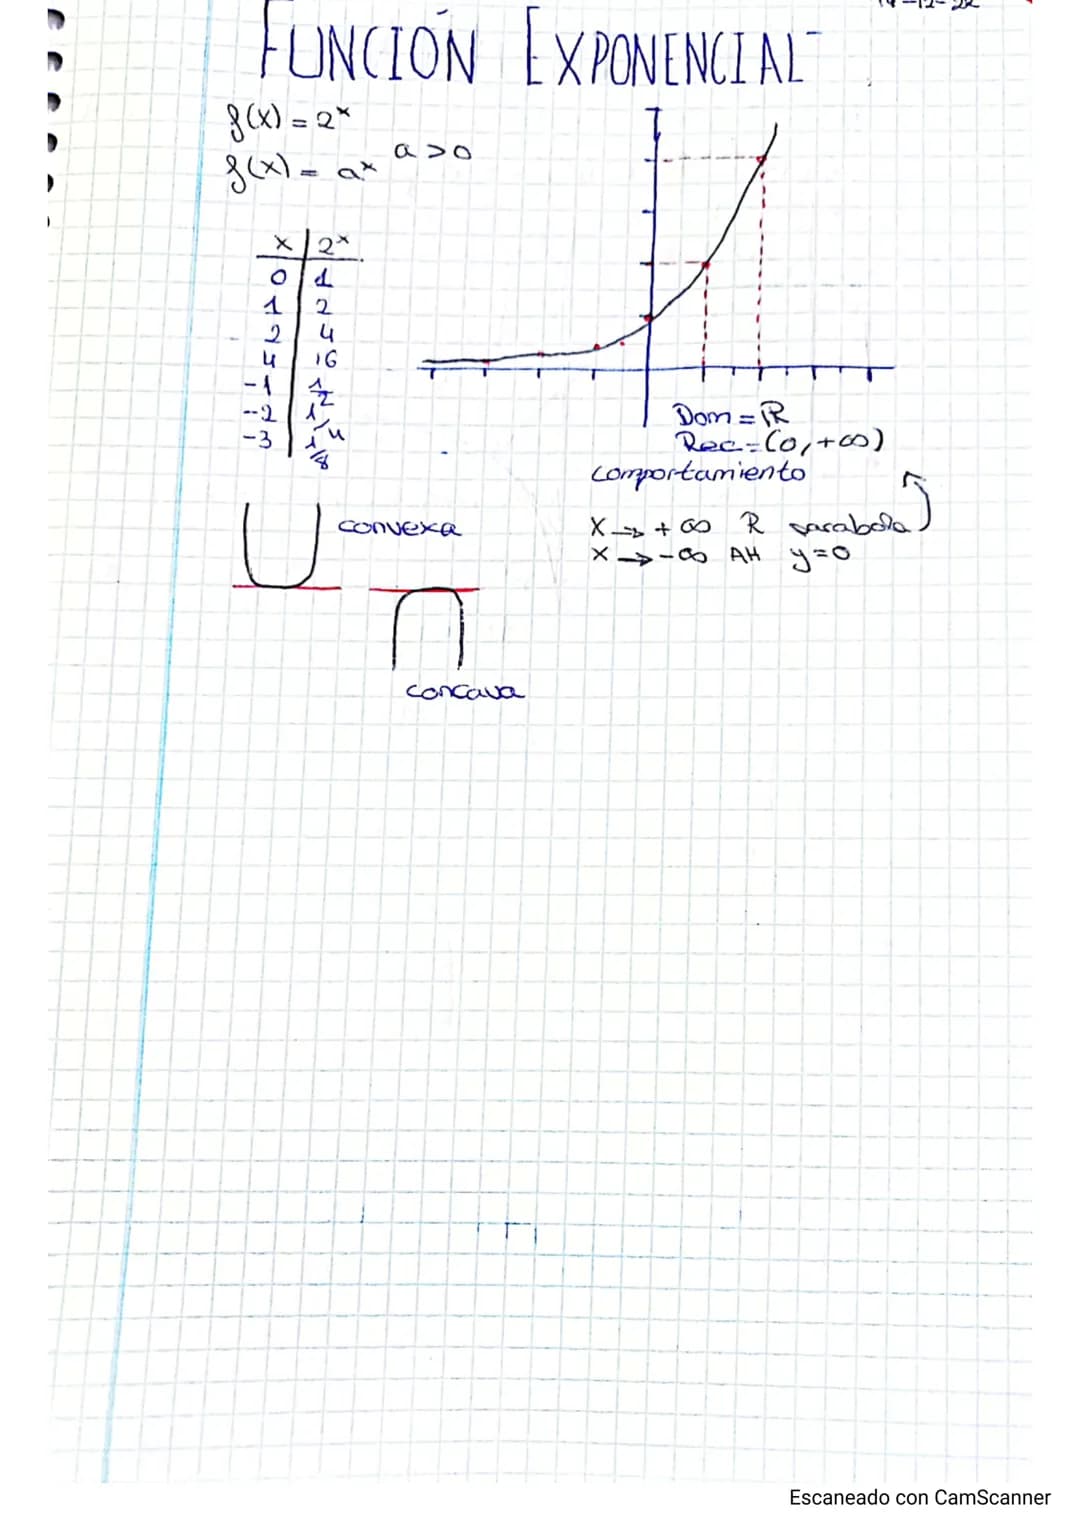 FUNCIÓN EXPONENCIAL
f(x) = 2ˣ
f(x) = aˣ a > 0
x | 2ˣ
0 | 1
1 | 2
2 | 4
4 | 16
-1 | 1/2
-2 | 1/4
-3 | 1/8
Dom = ℝ
Rec = (0, +∞)
comportamiento
X → + ∞ R parabola
X → - ∞ AH y = 0
convexa
concava
Escaneado con CamScanner